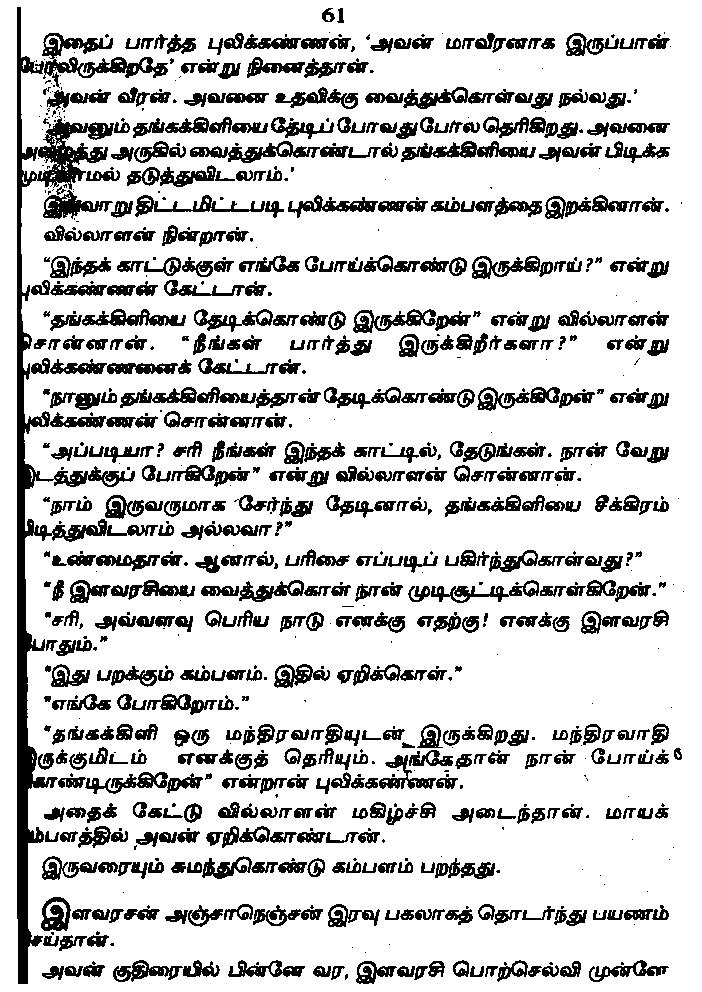 61
இதைப் பார்த்த புலிக்கண்ணன், ‘அவன் மாவீரனாக இருப்பான்
போலிருக்கிறதே’ என்று நினைத்தான்.
‘அவன் வீரன். அவனை உதவிக்கு வைத்துக்கொள்வது நல்லது.’
‘அவனும் தங்கக்கிளியை தேடிப் போவது போல தெரிகிறது. அவனை
அழைத்து அருகில் வைத்துக்கொண்டால் தங்கக்கிளியை அவன் பிடிக்க
முடியாமல் தடுத்துவிடலாம்.’
இவ்வாறு திட்டமிட்டபடி புலிக்கண்ணன் கம்பளத்தை இறக்கினான்.
வில்லாளன் நின்றான்.
“இந்தக் காட்டுக்குள் எங்கே போய்க்கொண்டு இருக்கிறாய்?” என்று
புலிக்கண்ணன் கேட்டான்.
“தங்கக்கிளியை தேடிக்கொண்டு இருக்கிறேன்” என்று வில்லாளன்
சொன்னான். “நீங்கள் பார்த்து இருக்கிறீர்களா?” என்று
புலிக்கண்ணனைக் கேட்டான்.
“நானும் தங்கக்கிளியைத்தான் தேடிக்கொண்டு இருக்கிறேன்” என்று
புலிக்கண்ணன் சொன்னான்.
“அப்படியா? சரி நீங்கள் இந்தக் காட்டில், தேடுங்கள். நான் வேறு
இடத்துக்குப் போகிறேன்” என்று வில்லாளன் சொன்னான்.
“நாம் இருவருமாக சேர்ந்து தேடினால், தங்கக்கிளியை சீக்கிரம்
பிடித்துவிடலாம் அல்லவா?”
“உண்மைதான். ஆனால், பரிசை எப்படிப் பகிர்ந்துகொள்வது?”
“நீ இளவரசியை வைத்துக்கொள் நான் முடிசூட்டிக்கொள்கிறேன்.”
“சரி, அவ்வளவு பெரிய நாடு எனக்கு எதற்கு! எனக்கு இளவரசி
போதும்.”
“இது பறக்கும் கம்பளம். இதில் ஏறிக்கொள்.”
“எங்கே போகிறோம்.”
“தங்கக்கிளி ஒரு மந்திரவாதியுடன் இருக்கிறது. மந்திரவாதி
இருக்குமிடம் எனக்குத் தெரியும். அங்கேதான் நான் போய்க்
கொண்டிருக்கிறேன்” என்றான் புலிக்கண்ணன்.
அதைக் கேட்டு வில்லாளன் மகிழ்ச்சி அடைந்தான். மாயக்
கம்பளத்தில் அவன் ஏறிக்கொண்டான்.
இருவரையும் சுமந்துகொண்டு கம்பளம் பறந்தது.
இளவரசன் அஞ்சாநெஞ்சன் இரவு பகலாகத் தொடர்ந்து பயணம்
செய்தான்.
அவன் குதிரையில் பின்னே வர, இளவரசி பொற்செல்வி முன்னே